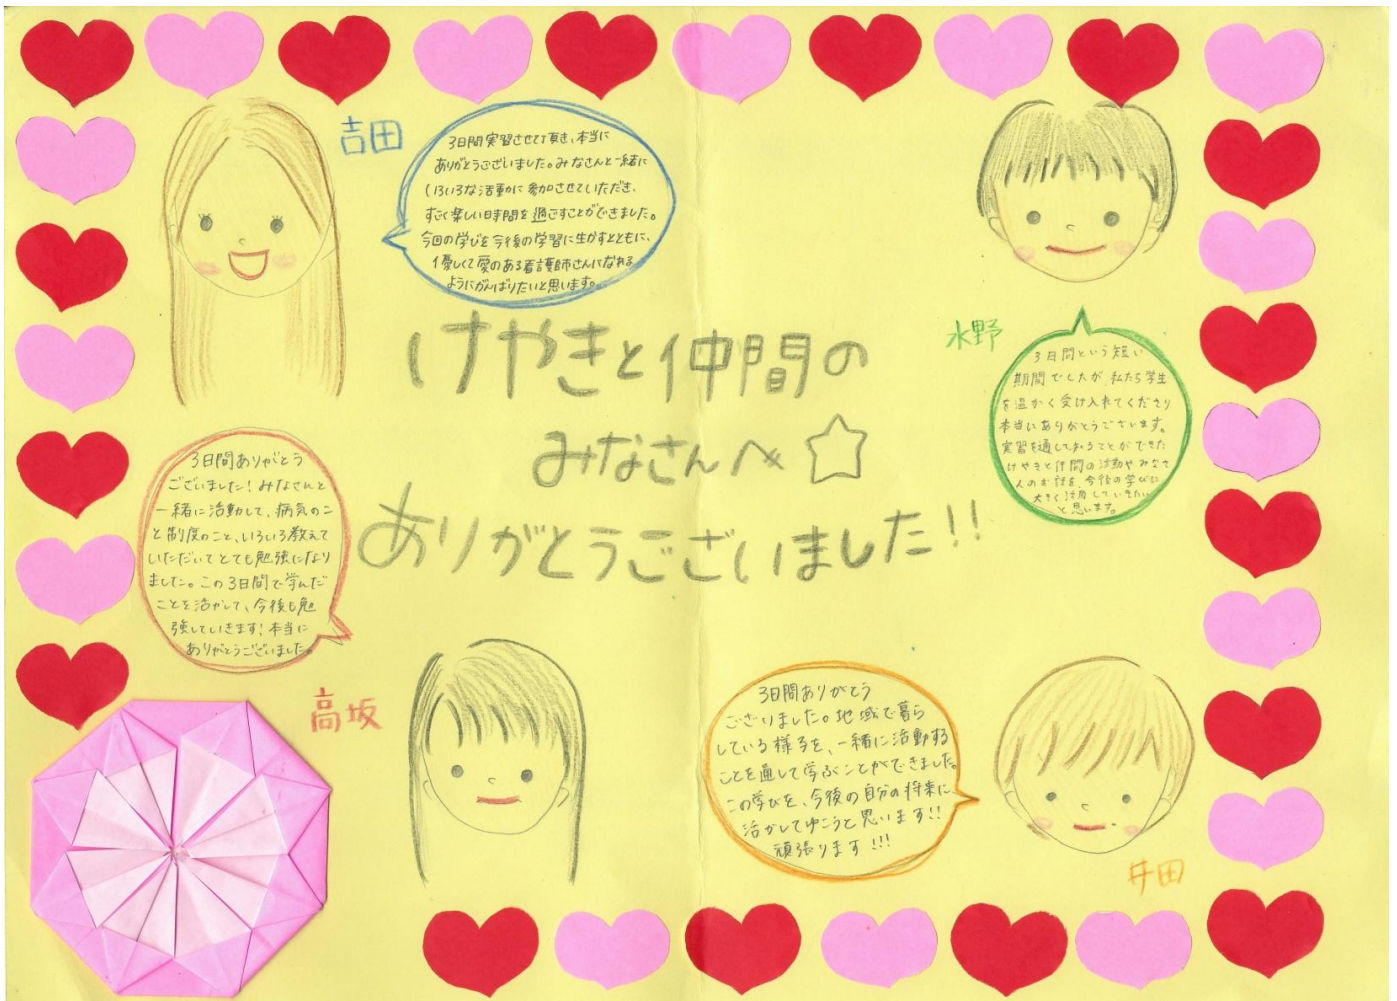 吉田
3日間実習させて頂き、本当に
ありがとうございました。みなさんと一緒に
いろいろな活動に参加させていただき、
すごく楽しい時間を過ごすことができました。
今回の学びを今後の学習に生かすとともに、
優しくて愛のある看護師さんになれる
ようにがんばりたいと思います。
けやきと仲間の
みなさんへ☆
ありがとうございました!!
水野
3日間という短い
期間でしたが、私たち学生
を温かく受け入れてくださり
本当にありがとうございます。
実習を通して知ることができた
けやきと仲間の活動やみなさ
んのお話を、今後の学びに
大きく活用していきたい
と思います。
3日間ありがとう
ございました!みなさんと
一緒に活動して、病気のこ
と制度のこと、いろいろ教えて
いただいてとても勉強になり
ました。この3日間で学んだ
ことを活かして、今後も勉
強していきます!本当に
ありがとうございました。
高坂
3日間ありがとう
ございました。地域で暮ら
している様子を、一緒に活動する
ことを通して学ぶことができました。
この学びを、今後の自分の将来に
活かしてゆこうと思います!!
頑張ります!!!
井田